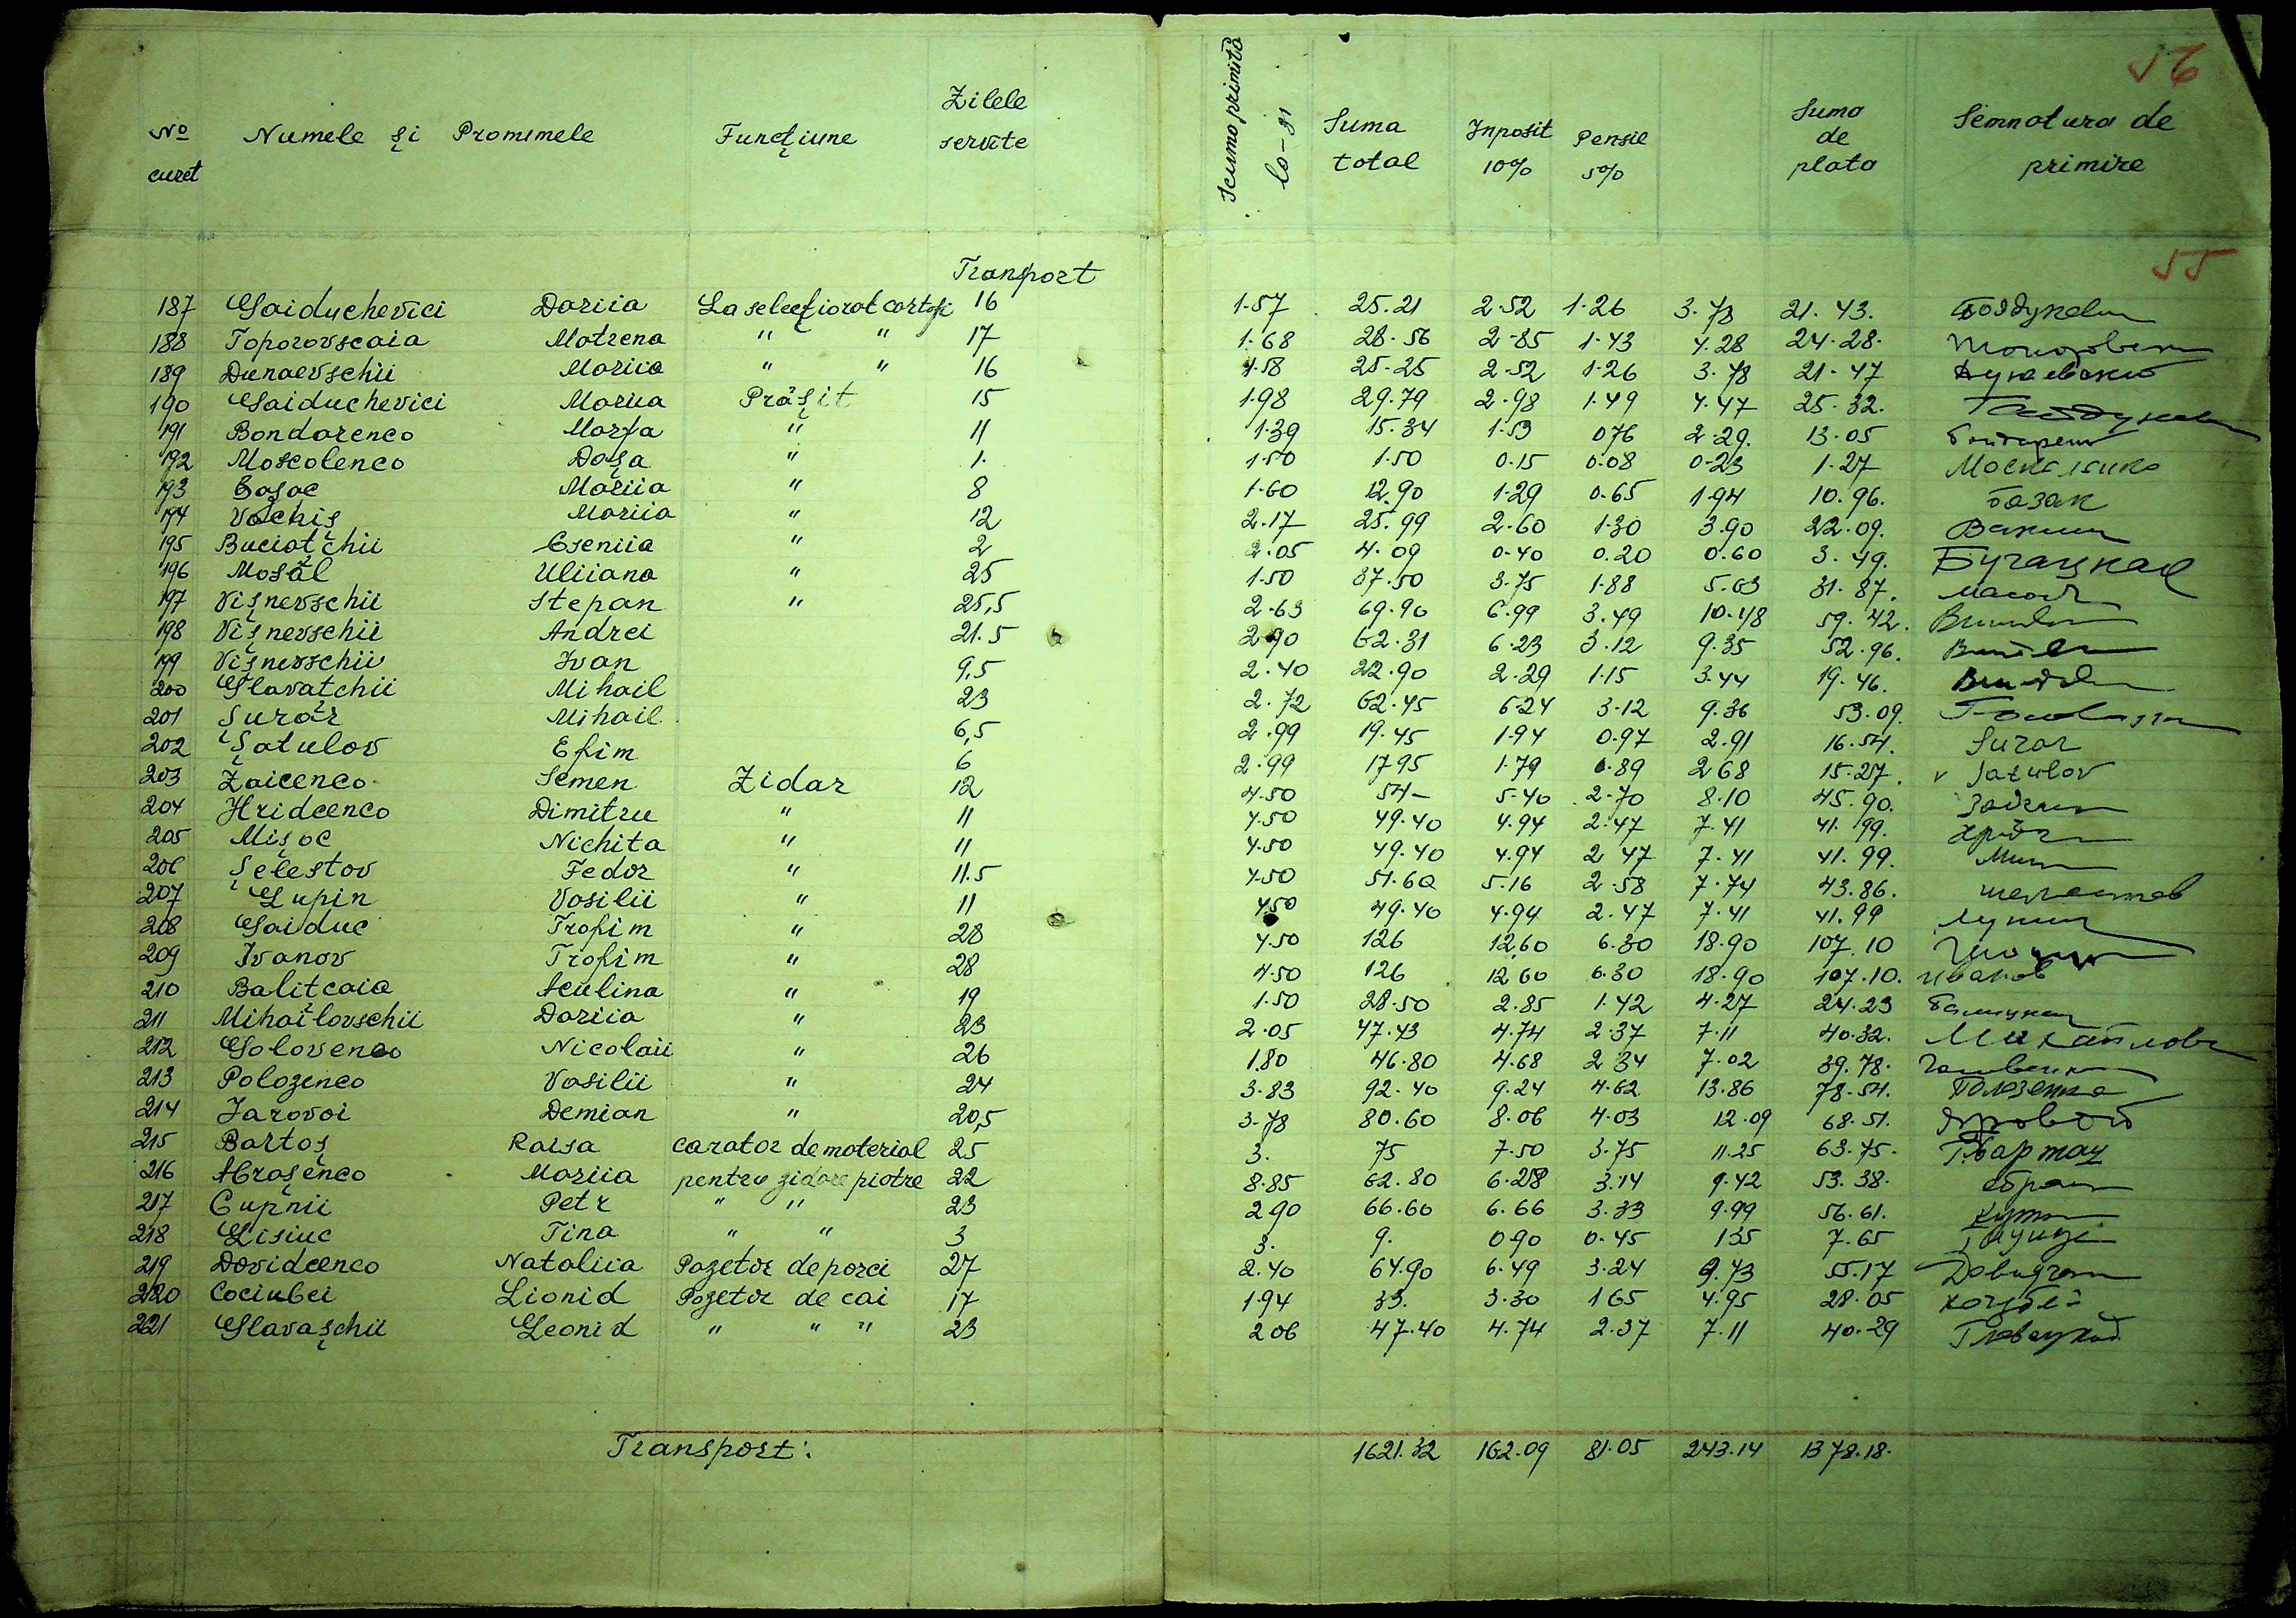 56
No curet Numele și Pronumele Funcțiune Zilele servite Scuma primită lo-31 Suma total Inposit 10% Pensie 5% Suma de plata Semnatura de primire
55
Transport
187 Gaiduchevici Dariia La selecționat cartofi 16 1.57 25.21 2.52 1.26 3.78 21.43.
188 Toporovscaia Motrena " " 17 1.68 28.56 2.85 1.43 4.28 24.28.
189 Dunaevschii Mariia " " 16 1.58 25.25 2.52 1.26 3.78 21.47 Дунаевский
190 Gaiduchevici Mariia Prășit 15 1.98 29.79 2.98 1.49 4.47 25.32.
191 Bondarenco Marfa " 11 1.39 15.34 1.53 076 2.29. 13.05
192 Moscolenco Dașa " 1. 1.50 1.50 0.15 0.08 0.23 1.27
193 Bașac Mariia " 8 1.60 12.90 1.29 0.65 1.94 10.96. Базак
194 Vachiș Mariia " 12 2.17 25.99 2.60 1.30 3.90 22.09.
195 Buciațchii Eseniia " 2 2.05 4.09 0.40 0.20 0.60 3.49. Бучацкая
196 Mosăl Uliiana " 25 1.50 37.50 3.75 1.88 5.63 31.87.
197 Vișnevschii Stepan " 25,5 2.63 69.90 6.99 3.49 10.48 59.42.
198 Vișnevschii Andrei 21.5 2.90 62.31 6.23 3.12 9.35 52.96.
199 Vișnevschii Ivan 9,5 2.40 22.90 2.29 1.15 3.44 19.46.
200 Glavatchii Mihail 23 2.72 62.45 6.24 3.12 9.36 53.09.
201 Șurar Mihail 6,5 2.99 19.45 1.94 0.97 2.91 16.54. Surar
202 Șatulov Efim 6 2.99 17 95 1.79 0.89 2 68 15.27. v Satulov
203 Zaicenco Semen Zidar 12 4.50 54- 5.40 2.70 8.10 45.90.
204 Hridcenco Dimitru " 11 4.50 49.40 4.94 2.47 7.41 41.99.
205 Mișoc Nichita " 11 4.50 49.40 4.94 2 47 7.41 41.99.
206 Șelestov Fedor " 11.5 4.50 51.60 5.16 2.58 7.74 43.86.
207 Lupin Vasilii " 11 4.50 49.40 4.94 2.47 7.41 41.99 Лупин
208 Gaiduc Trofim " 28 4.50 126 12,60 6.30 18.90 107.10
209 Ivanov Trofim " 28 4.50 126 12 60 6.30 18.90 107.10. Иванов
210 Balitcaia Aculina " 19 1.50 28.50 2.85 1.42 4.27 24.23
211 Mihailovschii Dariia " 23 2.05 47.43 4.74 2.37 7.11 40.32.
212 Golovenco Nicolaii " 26 1.80 46.80 4.68 2 34 7.02 39.78.
213 Polozenco Vasilii " 24 3.83 92.40 9.24 4.62 13.86 78.54. Полозенко
214 Jarovoi Demian " 20,5 3.78 80.60 8.06 4.03 12.09 68.51. Яровой
215 Bartoș Raisa carator de material 25 3. 75 7.50 3.75 11.25 63.75.
216 Abrașenco Mariia pentru zidare piatre 22 8.85 62.80 6.28 3.14 9.42 53.38.
217 Cupnii Petr " " 23 2 90 66.60 6.66 3.33 9.99 56.61.
218 Lisiuc Tina " " 3 3. 9. 0.90 0.45 1 35 7.65
219 Davidcenco Nataliia Pazetor de porci 27 2.40 64.90 6.49 3.24 9.73 55.17
220 Cociubei Lionid Pazetor de cai 17 1.94 33. 3.30 1 65 4.95 28.05 Кочубей
221 Glavașchii Leonid " " " 23 2 06 47.40 4.74 2.37 7.11 40.29
Transport: 1621.32 162.09 81.05 243.14 1378.18.